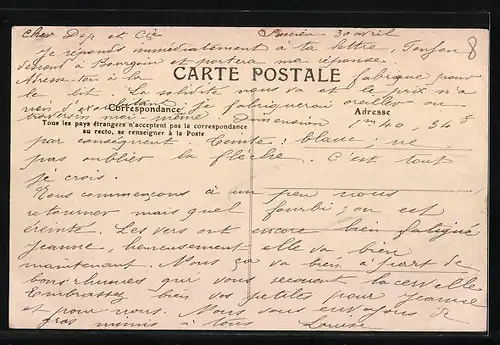 Cher Dep et Cie 30 avril
Je réponds immédiatement à ta lettre, Tonson
descend à Bourgoin et portera ma réponse.
CARTE POSTALE
Adresse-toi à la fabrique pour
le lit. La solidité nous va et le prix n'a
rien d'exorbitant, je fabriquerai oreiller ou
Correspondance
traversin moi-même. Dimension 1m 40,
Adresse
Tous les pays étrangers n'acceptent pas la correspondance
au recto, se renseigner à la Poste
par conséquent. Teinte : blanc, ne
pas oublier la flèche. C'est tout
je crois.
Nous commençons à un peu nous
retourner mais quel fourbi ; on est
éreinté. Les vers ont encore bien fatigué
Jeanne, heureusement elle va bien
maintenant. Nous ça va bien à part de
bons rhumes qui vous secouent la cervelle
Embrassez bien vos petites pour Jeanne
et pour nous. Nous vous envoyons
gros mimis à tous Louise
8